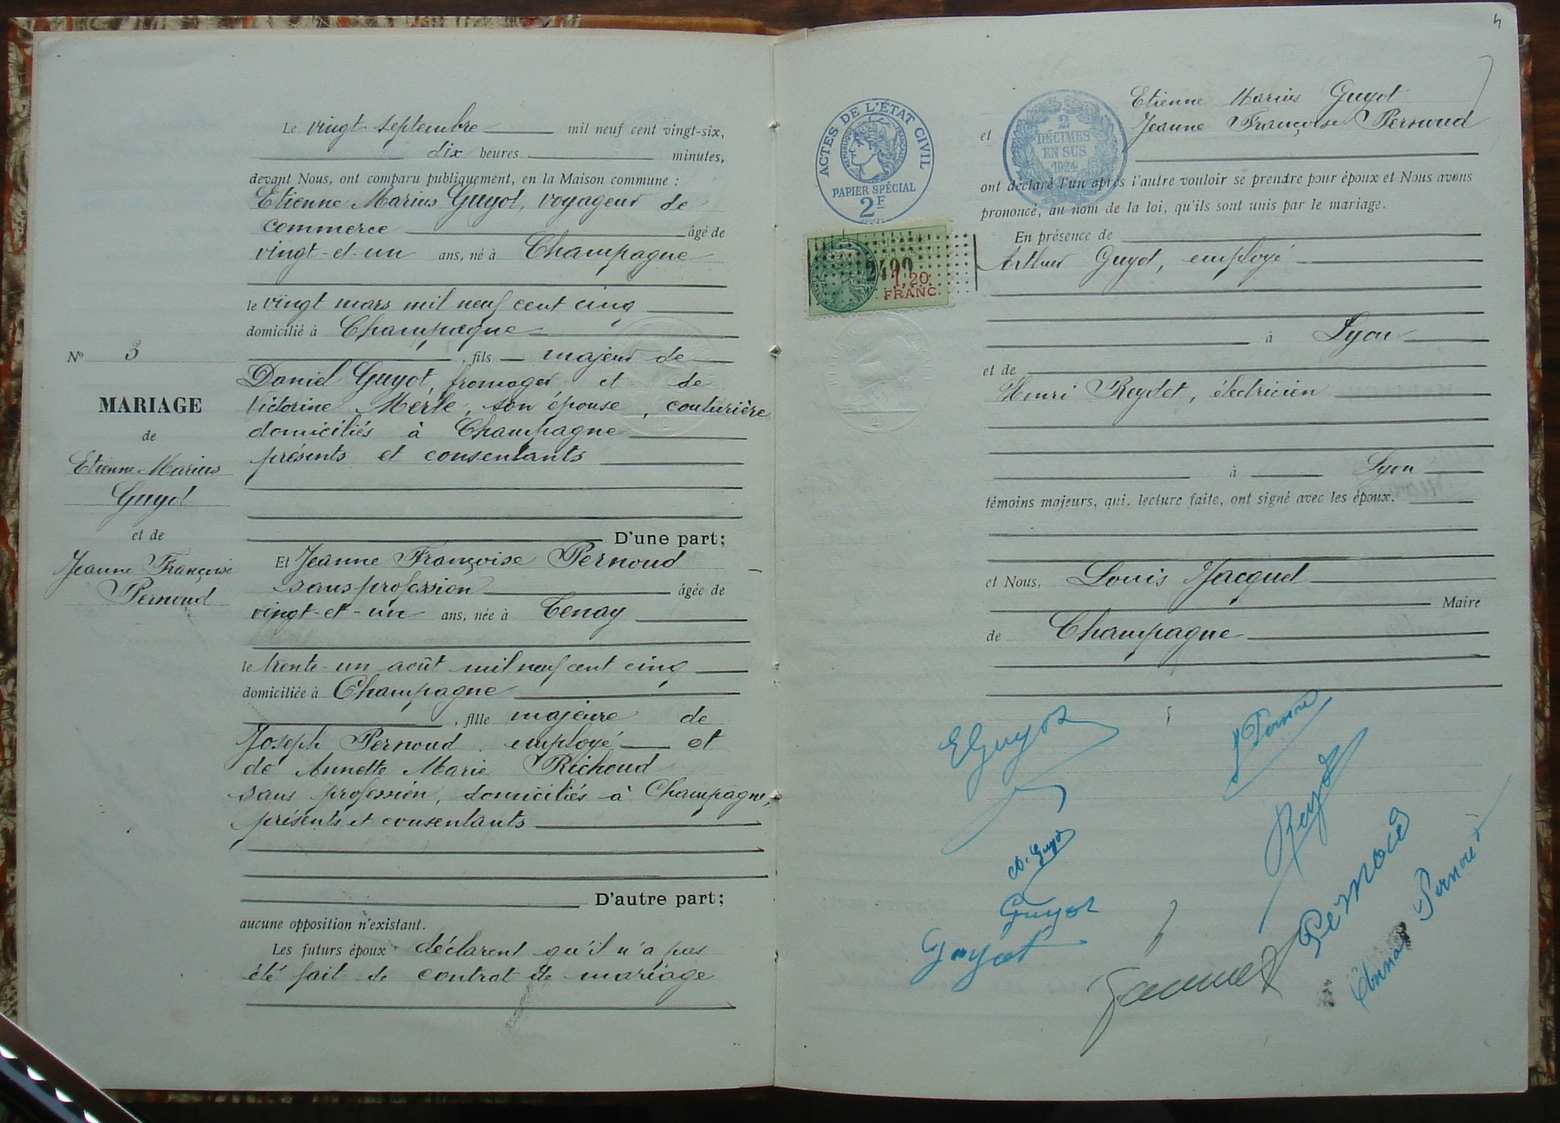 Le vingt septembre mil neuf cent vingt-six,
dix heures minutes,
devant Nous, ont comparu publiquement, en la Maison commune :
Etienne Marius Guyot, voyageur de
commerce âgé de
vingt-et-un ans, né à Champagne
le vingt mars mil neuf cent cinq
domicilié à Champagne
, fils majeur de
Daniel Guyot, fromager et de
Victorine Merle, son épouse, couturière
domiciliés à Champagne
présents et consentants
D'une part;
Et Jeanne Françoise Pernoud
sans profession âgée de
vingt-et-un ans, née à Tenay
le trente-un août mil neuf cent cinq
domiciliée à Champagne
, fille majeure de
Joseph Pernoud, employé et
de Annette Marie Richoud
sans profession, domiciliés à Champagne,
présents et consentants
D'autre part;
aucune opposition n'existant.
Les futurs époux déclarent qu'il n'a pas
été fait de contrat de mariage
N° 3
MARIAGE
de
Etienne Marius
Guyot
et de
Jeanne Françoise
Pernoud
4
ACTES DE L'ÉTAT CIVIL
PAPIER SPÉCIAL
2F
2
DÉCIMES
EN SUS
1924
2490
1,20
FRANC.
Etienne Marius Guyot
et Jeanne Françoise Pernoud
ont déclaré l'un après l'autre vouloir se prendre pour époux et Nous avons
prononcé, au nom de la loi, qu'ils sont unis par le mariage.
En présence de
Arthur Guyot, employé
à Lyon
et de
Henri Reydet, électricien
à Lyon
témoins majeurs, qui, lecture faite, ont signé avec les époux.
et Nous, Louis Jacquet
Maire
de Champagne
EGuyot
J Pernoud
Reydet
D. Guyot
Guyot
Guyot
Pernoud
Jacquet
Pernoud